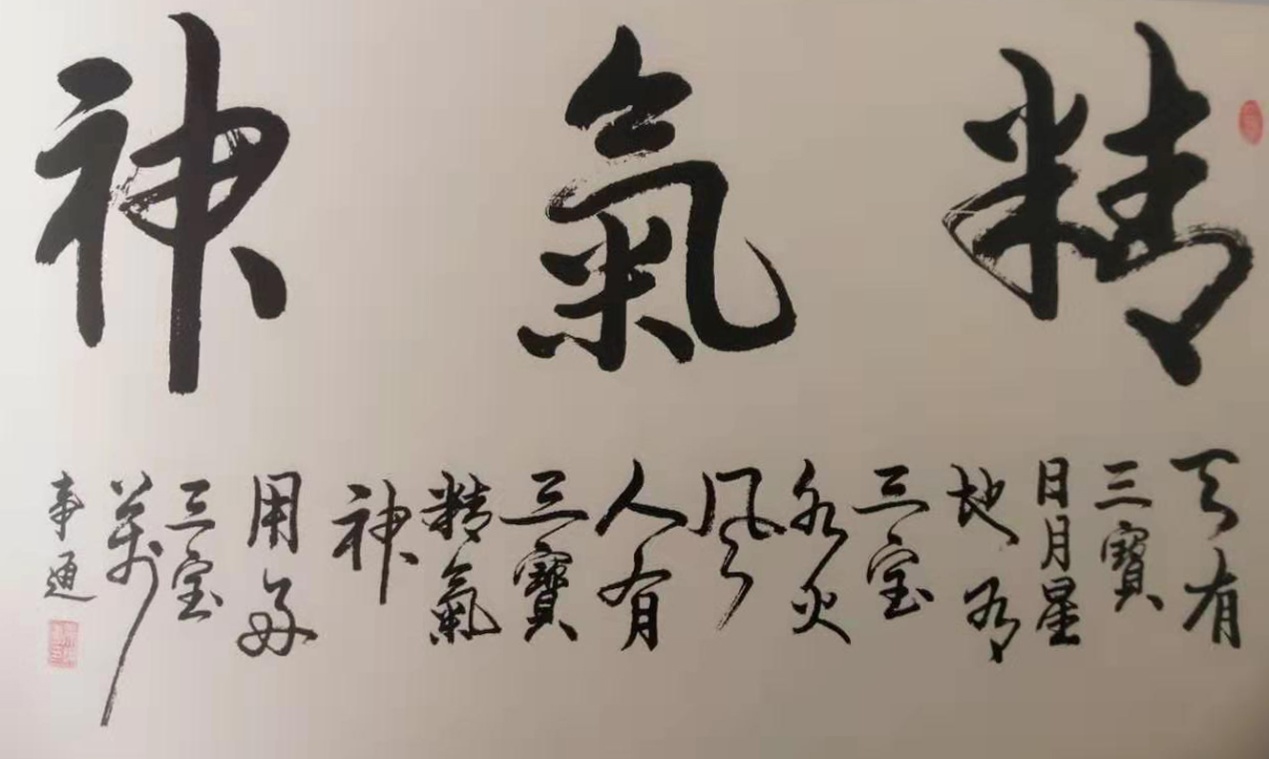 精氣神
天有
三寶
日月星
地有
三宝
水火
风
人有
三寶
精氣
神
用好
三宝
萬
事通